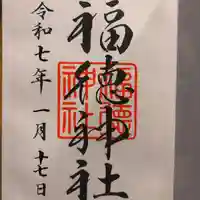 福徳神社
福徳神社
令和七年一月十七日